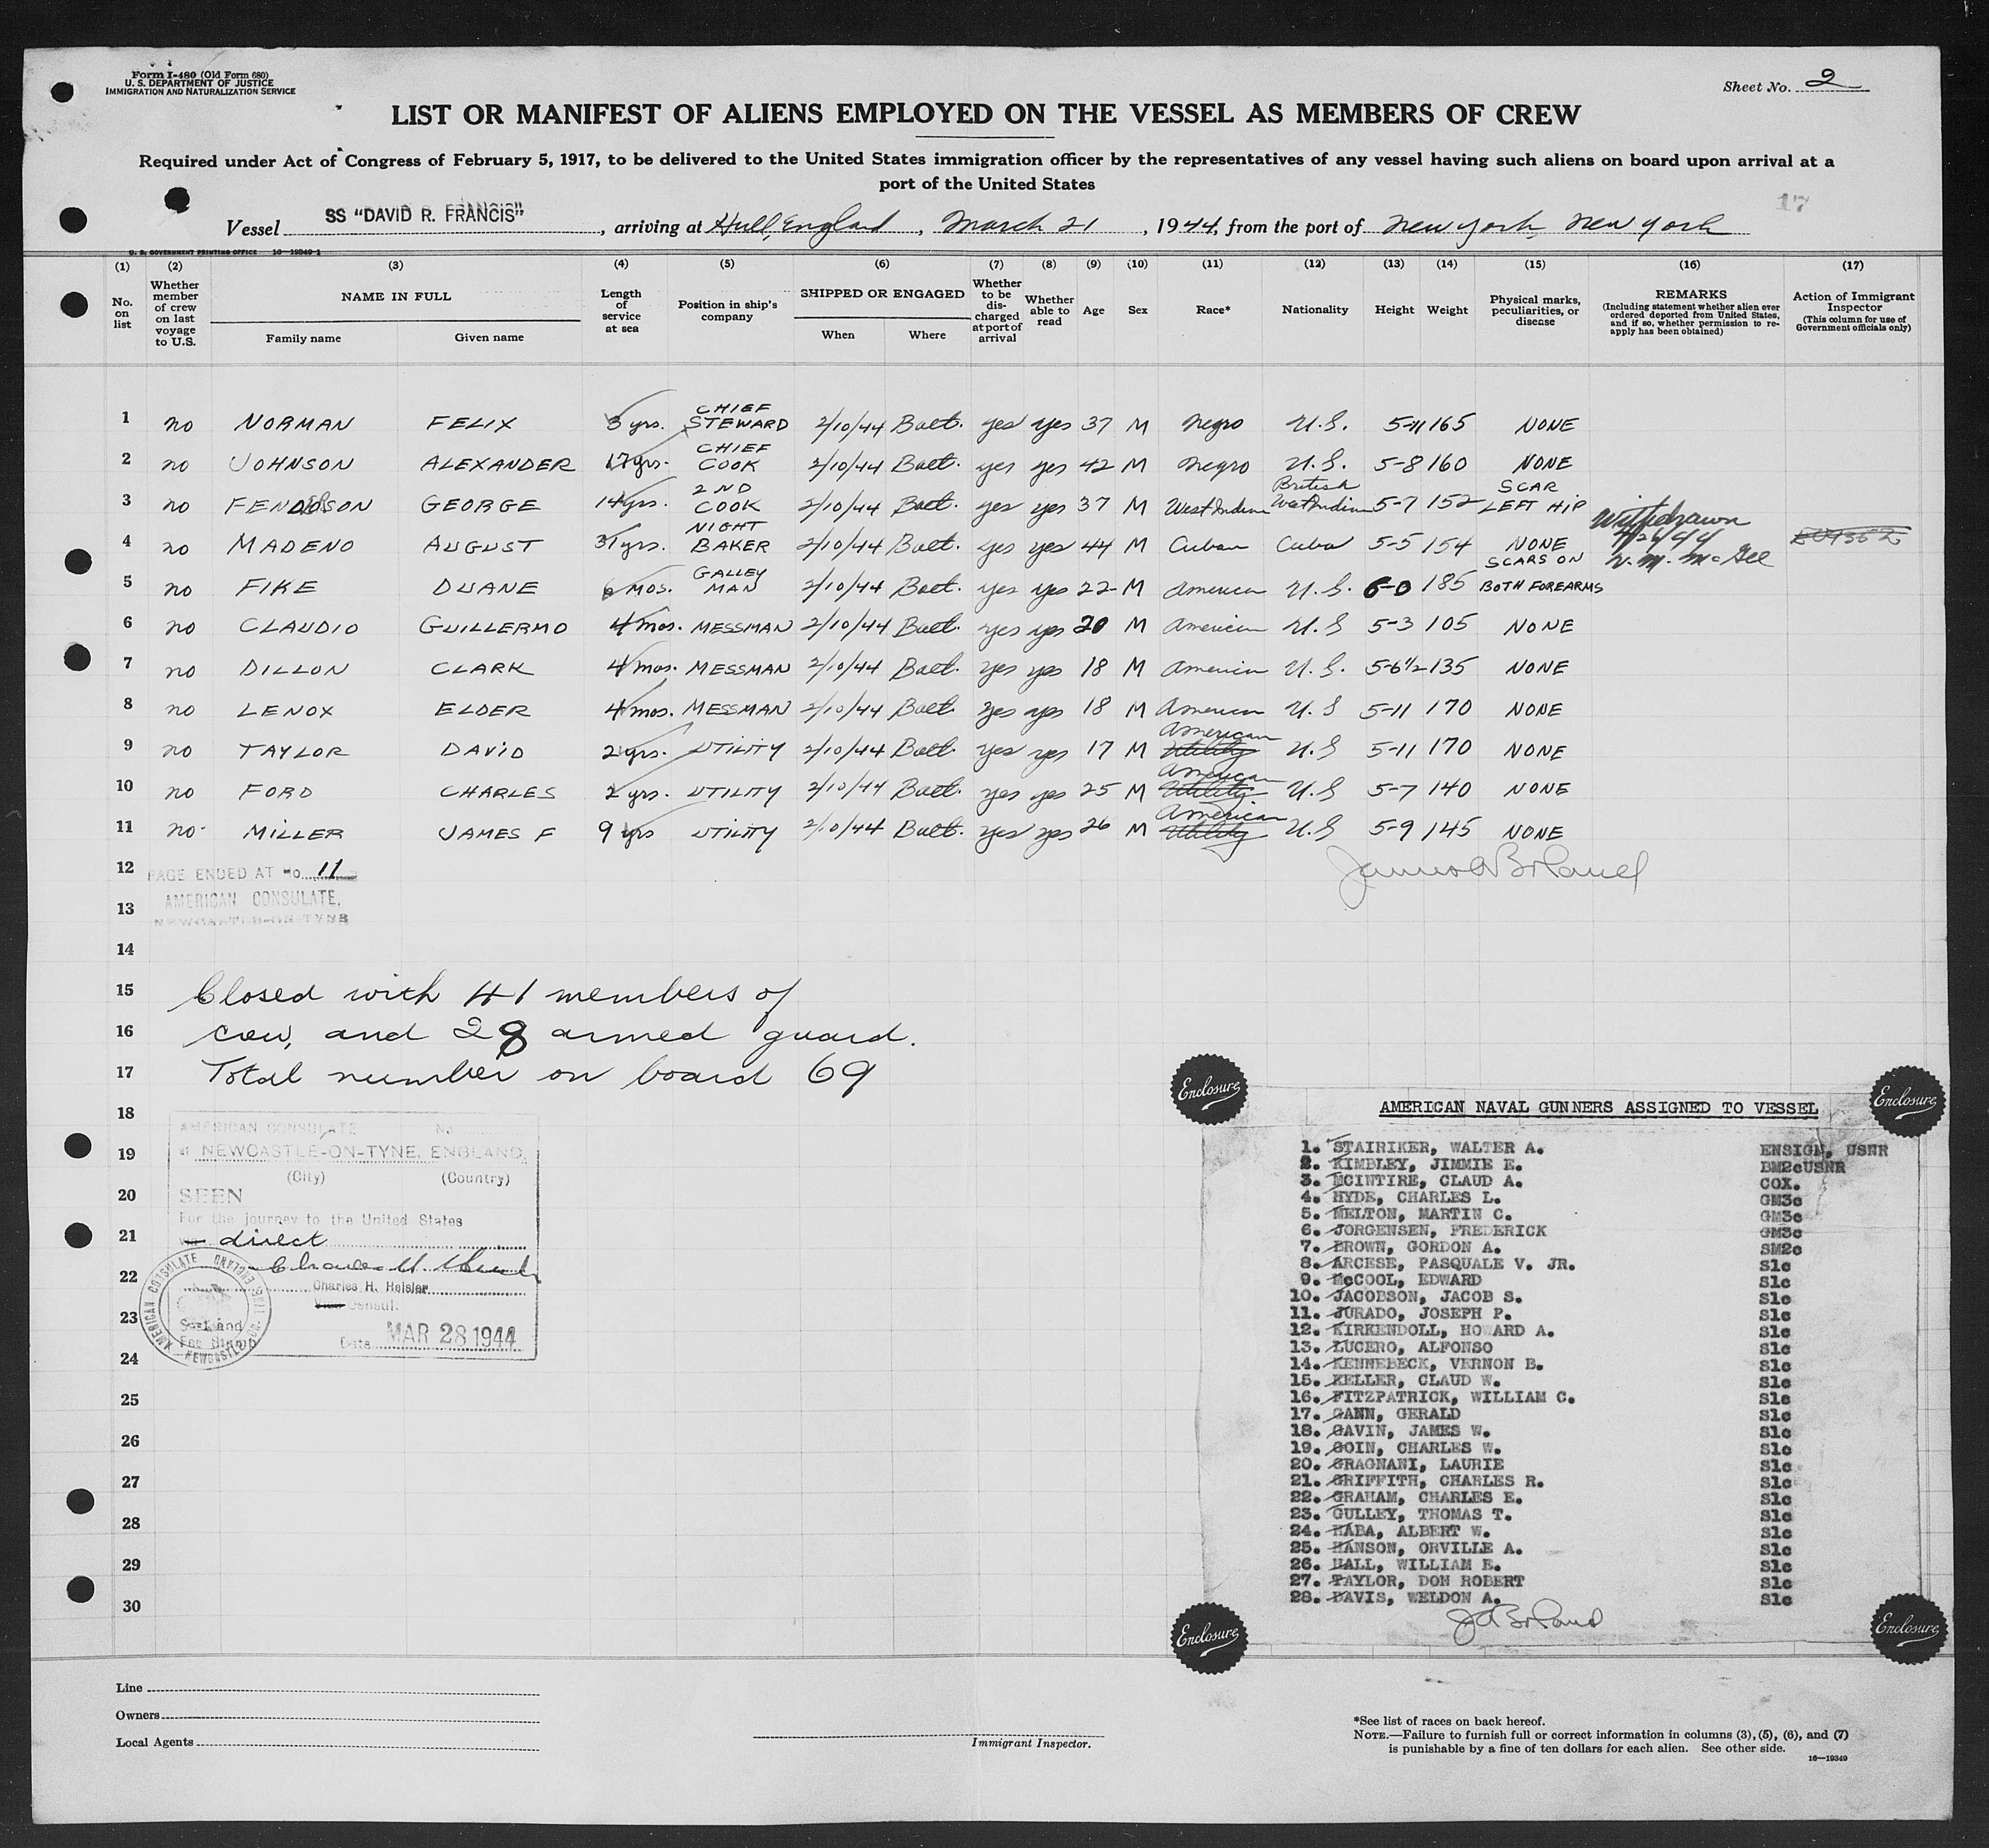 Form I-480 (Old Form 680)
U. S. DEPARTMENT OF JUSTICE
IMMIGRATION AND NATURALIZATION SERVICE
Sheet No. 2
LIST OR MANIFEST OF ALIENS EMPLOYED ON THE VESSEL AS MEMBERS OF CREW
Required under Act of Congress of February 5, 1917, to be delivered to the United States immigration officer by the representatives of any vessel having such aliens on board upon arrival at a
port of the United States
17
Vessel SS "DAVID R. FRANCIS", arriving at Hull, England, March 21, 1944, from the port of New York, New York
U. S. GOVERNMENT PRINTING OFFICE 16-19349-1
(1) (2) (3) (4) (5) (6) (7) (8) (9) (10) (11) (12) (13) (14) (15) (16) (17)
No. on list
Whether member of crew on last voyage to U.S.
NAME IN FULL
Family name Given name
Length of service at sea
Position in ship's company
SHIPPED OR ENGAGED
When Where
Whether to be discharged at port of arrival
Whether able to read
Age Sex Race* Nationality Height Weight
Physical marks, peculiarities, or disease
REMARKS
(Including statement whether alien ever ordered deported from United States, and if so, whether permission to re-apply has been obtained)
Action of Immigrant Inspector
(This column for use of Government officials only)
1 no NORMAN FELIX 3 yrs. CHIEF STEWARD 2/10/44 Balt. yes yes 37 M Negro U.S. 5-11 165 NONE
2 no JOHNSON ALEXANDER 17 yrs. CHIEF COOK 2/10/44 Balt. yes yes 42 M Negro U.S. 5-8 160 NONE
3 no GEORGE 14 yrs. 2ND COOK 2/10/44 Balt. yes yes 37 M West Indian British West Indian 5-7 152 SCAR LEFT HIP
4 no MADENO AUGUST yrs. NIGHT BAKER 2/10/44 Balt. yes yes 44 M Cuban Cuba 5-5 154 NONE Withdrawn W. M. McGee
5 no FIKE DUANE 6 MOS. GALLEY MAN 2/10/44 Balt. yes yes 22 M American U.S. 6-0 185 SCARS ON BOTH FOREARMS
6 no CLAUDIO GUILLERMO 4 mos. MESSMAN 2/10/44 Balt. yes yes 20 M American U.S 5-3 105 NONE
7 no DILLON CLARK 4 mos. MESSMAN 2/10/44 Balt. yes yes 18 M American U.S. 5-6½ 135 NONE
8 no LENOX ELDER 4 mos. MESSMAN 2/10/44 Balt. yes yes 18 M American U.S 5-11 170 NONE
9 no TAYLOR DAVID 2 yrs. UTILITY 2/10/44 Balt. yes yes 17 M American Utility U.S 5-11 170 NONE
10 no FORD CHARLES 2 yrs. UTILITY 2/10/44 Balt. yes yes 25 M American Utility U.S 5-7 140 NONE
11 no. MILLER JAMES F 9 yrs UTILITY 2/10/44 Balt. yes yes 26 M American Utility U.S 5-9 145 NONE
12 PAGE ENDED AT NO. 11
13 AMERICAN CONSULATE,
NEWCASTLE-ON-TYNE
14
15 Closed with 41 members of
16 crew, and 28 armed guard.
17 Total number on board 69
18
19
20
21
22
23
24
25
26
27
28
29
30
AMERICAN CONSULATE No.
at NEWCASTLE-ON-TYNE, ENGLAND,
(City) (Country)
SEEN
For the journey to the United States
via direct
Charles H. Heisler
Vice Consul.
Date MAR 28 1944
AMERICAN CONSULATE NEWCASTLE-ON-TYNE ENGLAND
Enclosure
Enclosure
AMERICAN NAVAL GUNNERS ASSIGNED TO VESSEL
1. STAIRIKER, WALTER A. ENSIGN, USNR
2. KIMBLEY, JIMMIE E. BM2cUSNR
3. MCINTIRE, CLAUD A. COX.
4. HYDE, CHARLES L. GM3c
5. MELTON, MARTIN C. GM3c
6. JORGENSEN, FREDERICK GM3c
7. BROWN, GORDON A. SM2c
8. ARCESE, PASQUALE V. JR. S1c
9. McCOOL, EDWARD S1c
10. JACOBSON, JACOB S. S1c
11. JURADO, JOSEPH P. S1c
12. KIRKENDOLL, HOWARD A. S1c
13. LUCERO, ALFONSO S1c
14. KENNEBECK, VERNON B. S1c
15. KELLER, CLAUD W. S1c
16. FITZPATRICK, WILLIAM C. S1c
17. GANN, GERALD S1c
18. GAVIN, JAMES W. S1c
19. GOIN, CHARLES W. S1c
20. GRAGNANI, LAURIE S1c
21. GRIFFITH, CHARLES R. S1c
22. GRAHAM, CHARLES E. S1c
23. GULLEY, THOMAS T. S1c
24. HABA, ALBERT W. S1c
25. HANSON, ORVILLE A. S1c
26. HALL, WILLIAM E. S1c
27. TAYLOR, DON ROBERT S1c
28. DAVIS, WELDON A. S1c
Enclosure
Enclosure
Line
Owners
Local Agents
Immigrant Inspector.
*See list of races on back hereof.
NOTE.—Failure to furnish full or correct information in columns (3), (5), (6), and (7)
is punishable by a fine of ten dollars for each alien. See other side.
16—19349